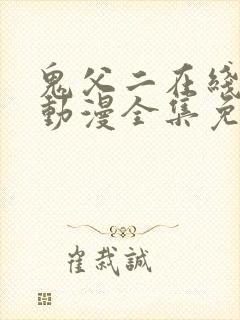 鬼父二在綫
動漫全集免
崔栽誠